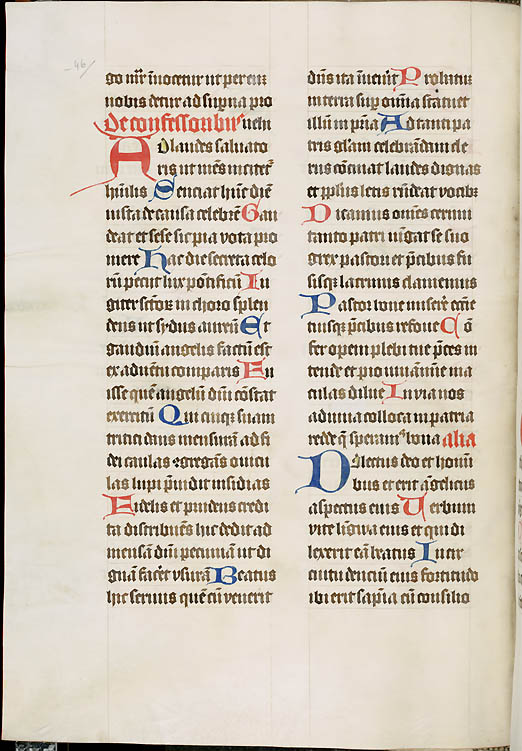 46
go nr̄ īnocetur ut per eūz
nobis detur ad sup̄na pro
De confessoribus veni
Ad laudes saluato
ris ut mēs īnciteť
humilis Senciat hūc diē
iusta de causa celebrē Gau
deat et sese sic pia vota pro
mere Hac die secreta celo
rū pecūt lux pōtificū In
giter sctōrum choro splen
dens ut sydus aureū Et
gaudiū angelis factū est
ex aduētu comparis En
iste quē angelū dūi cōstat
exercitū Qui cuiqz suam
tritici dans mensurā ad fi
dei caulas ꝯgregās ouicu
las lupi p̄uidit insidias
Fidelis et prudens credi
ta distribuēs hic dedit ad
mensā dn̄i pecuniam ut di
gnā facet̄ vsurā Beatus
hic seruus quē cū venerit
dn̄s ita īnuēit Prolutur
in terra sup̄ om̄ia statuet
illū in pr̄ia Ad tanti pa
tris glām celebrādam cle
rus cōcinat laudes dignas
et pp̄lus letis rn̄deat vocibz
Dicamus om̄es cernui
tanto patri iūgat se suo
grex pastori et p̄cibus fu
sisqz lacrimis clamemus
Pastor bone miserē eccīe
tuisqz p̄cibus refoue Cō
fer opem plebi tue p̄ces in
tende et pro munāmīe ma
culas dilue In via nos
adiuua colloca in patria
redde q̄ speramꝰ bona alia
Dilectus deo et homī
bus et erit āgelicus
aspectus eius Verbum
vite līgwa eius et qui di
lexerit eā beatus Lucir
cuitu dencium eius fortitudo
ibi erit sapīa cū consilio